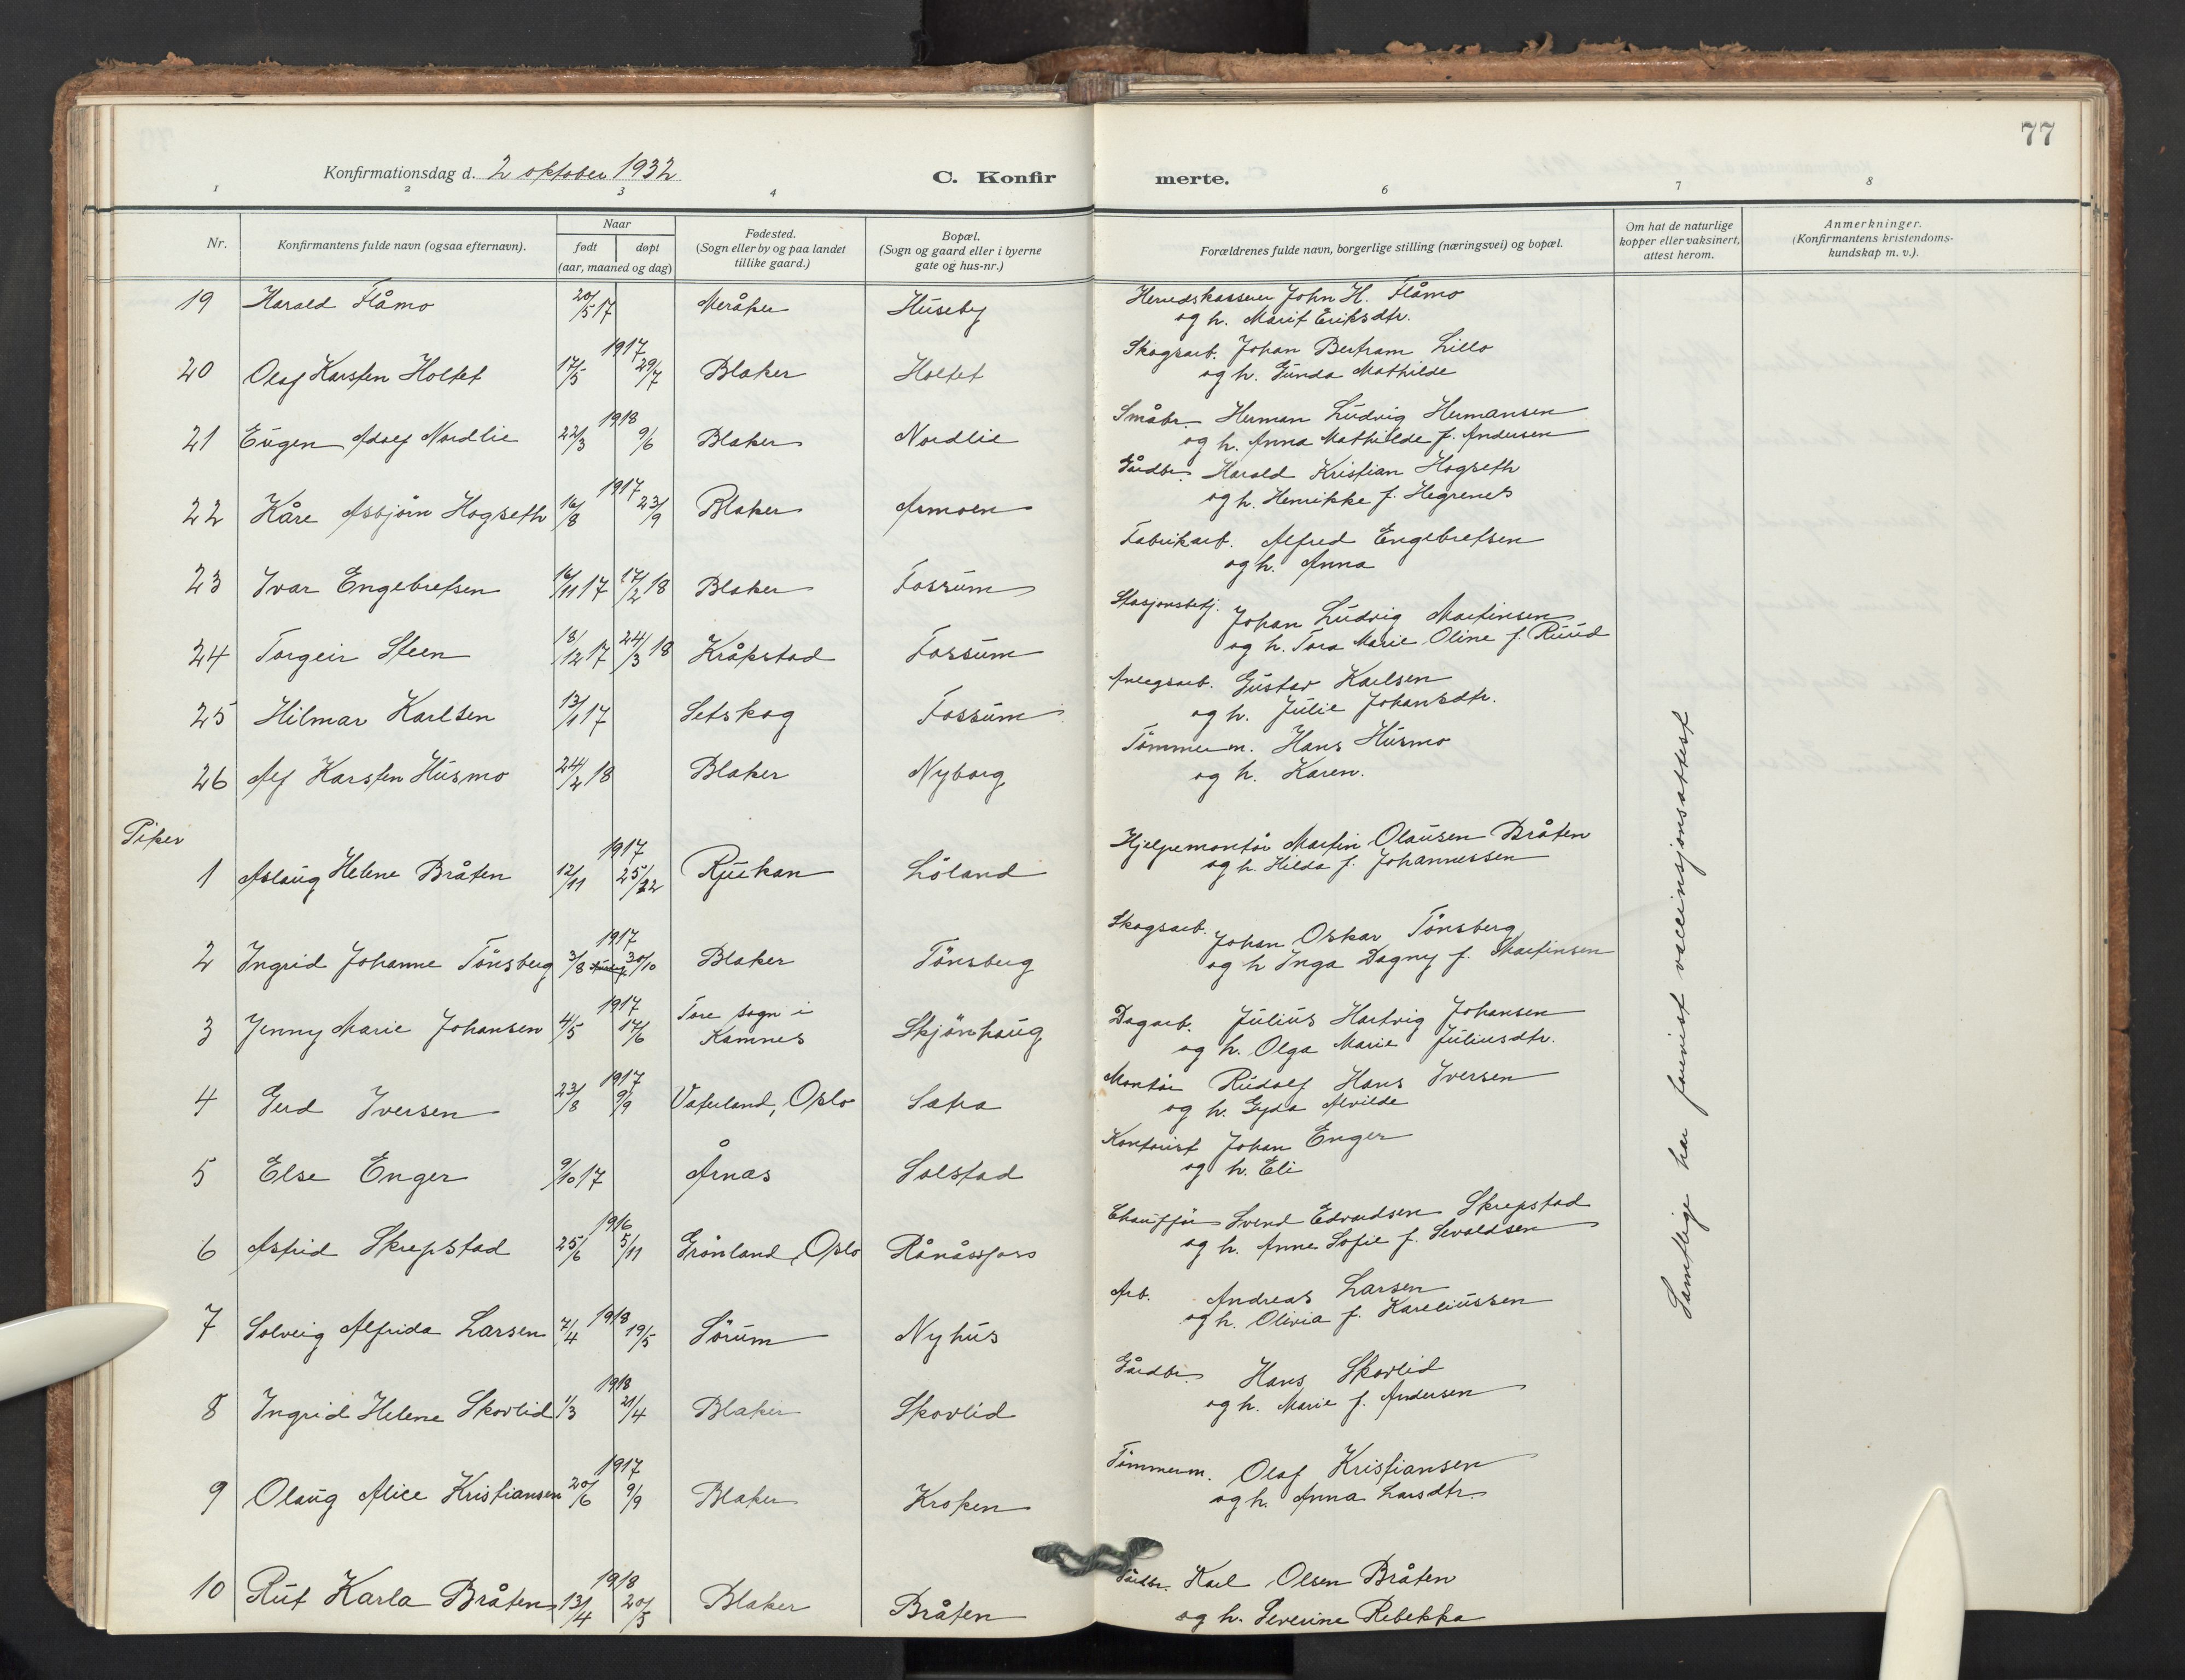 77
Konfirmationsdag d. 2 oktober 1932
C. Konfirmerte.
1 2 3 4 6 7 8
Nr.
Konfirmantens fulde navn (ogsaa efternavn).
Naar
født døpt
(aar, maaned og dag)
Fødested.
(Sogn eller by og paa landet
tillike gaard.)
Bopæl.
(Sogn og gaard eller i byerne
gate og hus-nr.)
Forældrenes fulde navn, borgerlige stilling (næringsvei) og bopæl.
Om hat de naturlige
kopper eller vaksinert,
attest herom.
Anmerkninger.
(Konfirmantens kristendoms-
kundskap m. v.).
19 Harald Flåmo 20/5 17 Meråker Huseby Herredskasserer John H. Flåmo
og h. Marit Eriksdtr.
20 Olaf Karsten Holtet 17/5 1917 29/7 Blaker Holtet Skogsarb. Johan Bertram Lillo
og h. Gunda Mathilde
21 Eugen Adolf Nordlie 22/3 1918 9/6 Blaker Nordlie Småbr. Herman Ludvig Hermansen
og h. Anna Mathilde f. Andersen
22 Kåre Asbjörn Hogseth 16/8 1917 23/9 Blaker Asmoen Gårdbr. Harald Kristian Hogseth
og h. Henrikke f. Hegrenes
23 Ivar Engebretsen 16/11 17 17/2 18 Blaker Fossum Fabrikarb. Alfred Engebretsen
og h. Anna
24 Torgeir Steen 18/12 17 24/3 18 Kråkstad Fossum Stasjonsbetj. Johan Ludvig Martinsen
og h. Tora Marie Oline f. Ruud
25 Hilmar Karlsen 13/1 17 Setskog Fossum Anlegsarb. Gustav Karlsen
og h. Julie Johansdtr.
26 Alf Karsten Husmo 24/2 18 Blaker Nyborg Tömmerm. Hans Husmo
og h. Karen.
Piker
1 Aslaug Helene Bråten 12/11 1917 25/12 Rjukan Löland Hjelpemontör Martin Olausen Bråten
og h. Hilda f. Johannessen
2 Ingrid Johanne Tönsberg 3/8 1917 30/10 Blaker Tönsberg Skogsarb. Johan Oskar Tönsberg
og h Inga Dagny f. Martinsen
3 Jenny Marie Johansen 4/5 1917 17/6 Tore sogn i
Kamnes Skjönhaug Dagarb. Julius Hartvig Johansen
og h. Olga Marie Juliusdtr.
4 Gerd Iversen 23/8 1917 9/9 Vaterland, Oslo Satra Montör Rudolf Hans Iversen
og h. Gyda Alvilde
5 Else Enger 9/10 17 Årnas Solstad Kontorist Johan Enger
og h. Eli
6 Astrid Skrepstad 25/6 1916 5/11 Grönland, Oslo Rånåsfoss Chaufför Svend Edvardsen Skrepstad
og h. Anne Sofie f. Sevaldsen
7 Solveig Alfrida Larsen 7/4 1918 19/5 Sörum Nyhus Arb. Andreas Larsen
og h. Olivia f. Kareliussen
8 Ingrid Helene Skovlid 1/3 1918 21/4 Blaker Skovlid Gårdbr. Hans Skovlid
og h. Marie f. Andersen
9 Olaug Alice Kristiansen 20/6 1917 9/9 Blaker Kroken Tömmerm. Olaf Kristiansen
og h. Anna Larsdtr.
10 Rut Karla Bråten 13/4 1918 20/5 Blaker Bråten Gårdbr. Karl Olsen Bråten
og h. Severine Rebekka
Samtlige har forevist vaccinsjonsattest